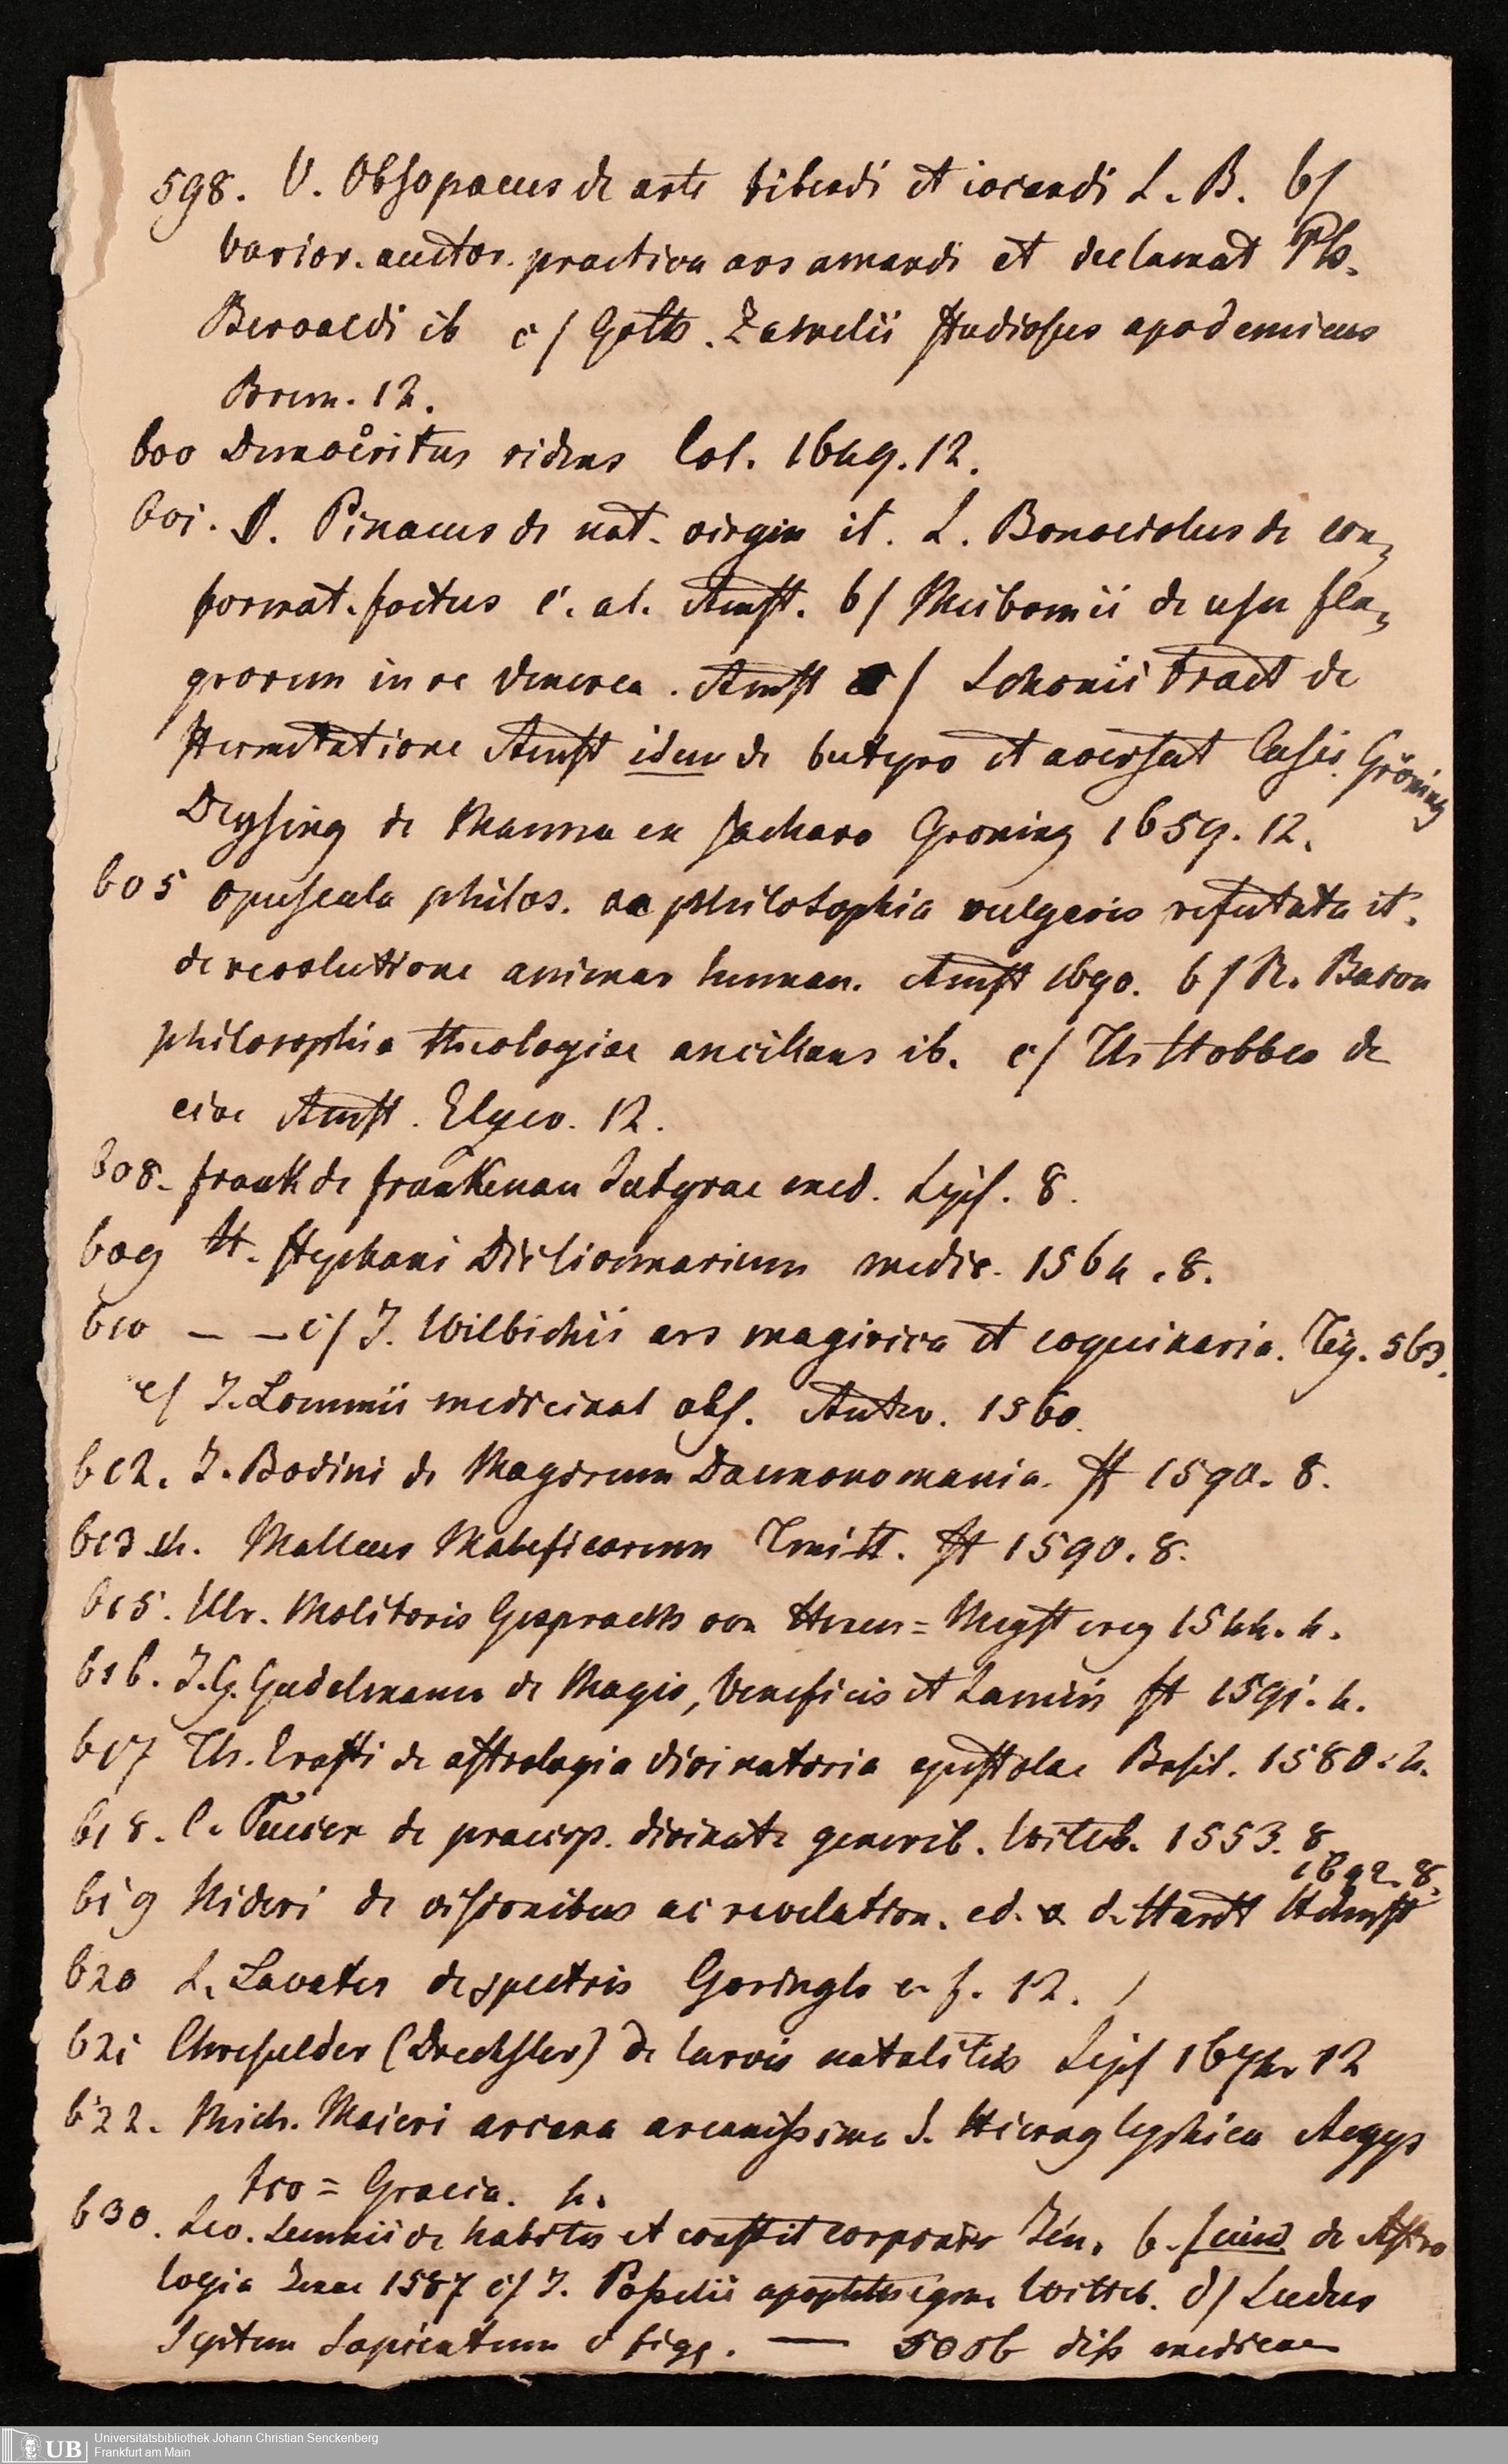 598. V. Obsopaeus de arte bibendi et iocandi L. B. b/
varior. auctor. practica ars amandi et declamat Ph.
Beroaldi ib c/ Goth. Zamelii studiosus apodemicus
Brem. 12.
600 Democritus ridens Col. 1649. 12.
601. S. Pinaeus de nat. virgin it. L. Bonaciolus de con,
format. foetus c. al. Amst. b/ Meibomii de usu fla,
grorum in re venerea. Amst /  Schonii Tract de
Amst idem de butyro et aversat Casei. Gröning
Deysing de Manna en sacharo Groning 1659. 12.
605 opuscula philos. ac philosophia vulgaris refutata it.
de revolutione animar human. Amst 1690. b/ R. Baron
philosophia theologiae ancillans ib. c/ Th Hobbes de
cive Amst. Elzev. 12.
608. Frank de Frankenau Satyrae med. Lips. 8.
609 H. Stephani Dictionnarium medic. 1564. 8.
610 — — c/ J. Wilbichii ars magirica et coquinaria. Tig. 563.
e/ J. Lommii medicinal obs. Antw. 1560.
612. J. Bodini de Magorum Daemonomania. ff 1590. 8.
613.4. Malleus Maleficarum ff 1590. 8.
615. Ulr. Molitoris Gespraech von Hexen=Meysterey 1544. 4.
616. J. G. Godelmann de Magis, Veneficis et Lamiis ff 1591. 4.
617 Th. Erasti de astrologia divinatoria epistolae Basil. 1580. 4.
618. C. Peucer de praecip. divinat. generib. Witteb. 1553. 8
1692. 8.
619 Nideri de visionibus ac revelation. ed. v. d. Hardt Helmst
620 L. Lavater de spectris Gorinch e. f. 12. /
621 Chresulder (Drechsler) de larvis natalitiis Lips 1674. 12
622. Mich. Maieri arcana arcanissima s. Hieroglyphica Aegyp
tio=Graeca. 4.
630. Leo. Lemnii de habitu et constit corporis Jen. b. / eiusd de Astro
logia Jenae 1587 c/ J. Posselii apophthegm. Witteb. d/ Ludus
Septem Sapientum c fig. — 5006 diss medicae
Universitätsbibliothek Johann Christian Senckenberg
Frankfurt am Main
UB